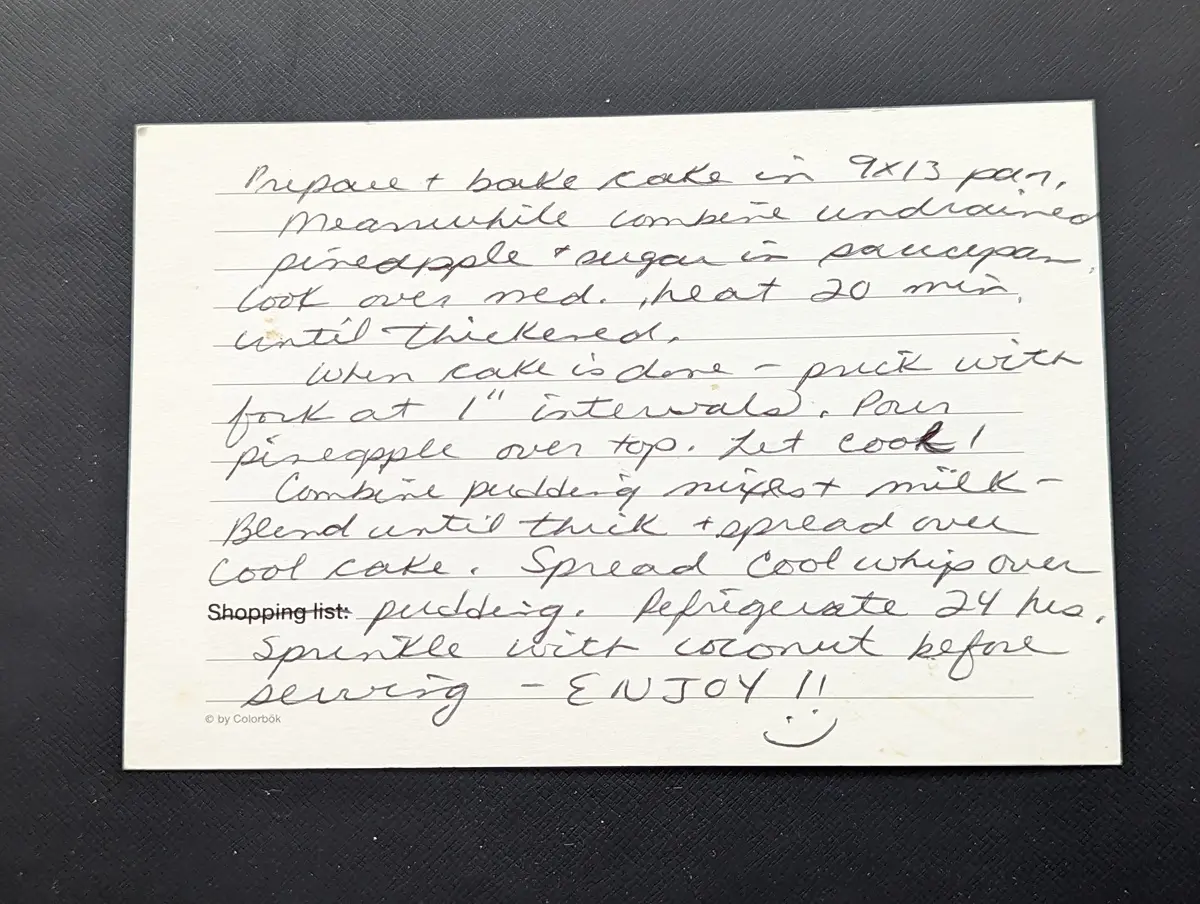 Prepare + bake cake in 9x13 pan.
Meanwhile combine undrained
pineapple + sugar in saucepan.
Cook over med. heat 20 min.
until thickened.
When cake is done - prick with
fork at 1" intervals. Pour
pineapple over top. Let cool!
Combine pudding mixes + milk -
Blend until thick + spread over
cool cake. Spread Cool whip over
Shopping list: pudding. Refrigerate 24 hrs.
Sprinkle with coconut before
serving - ENJOY!!
© by Colorbök